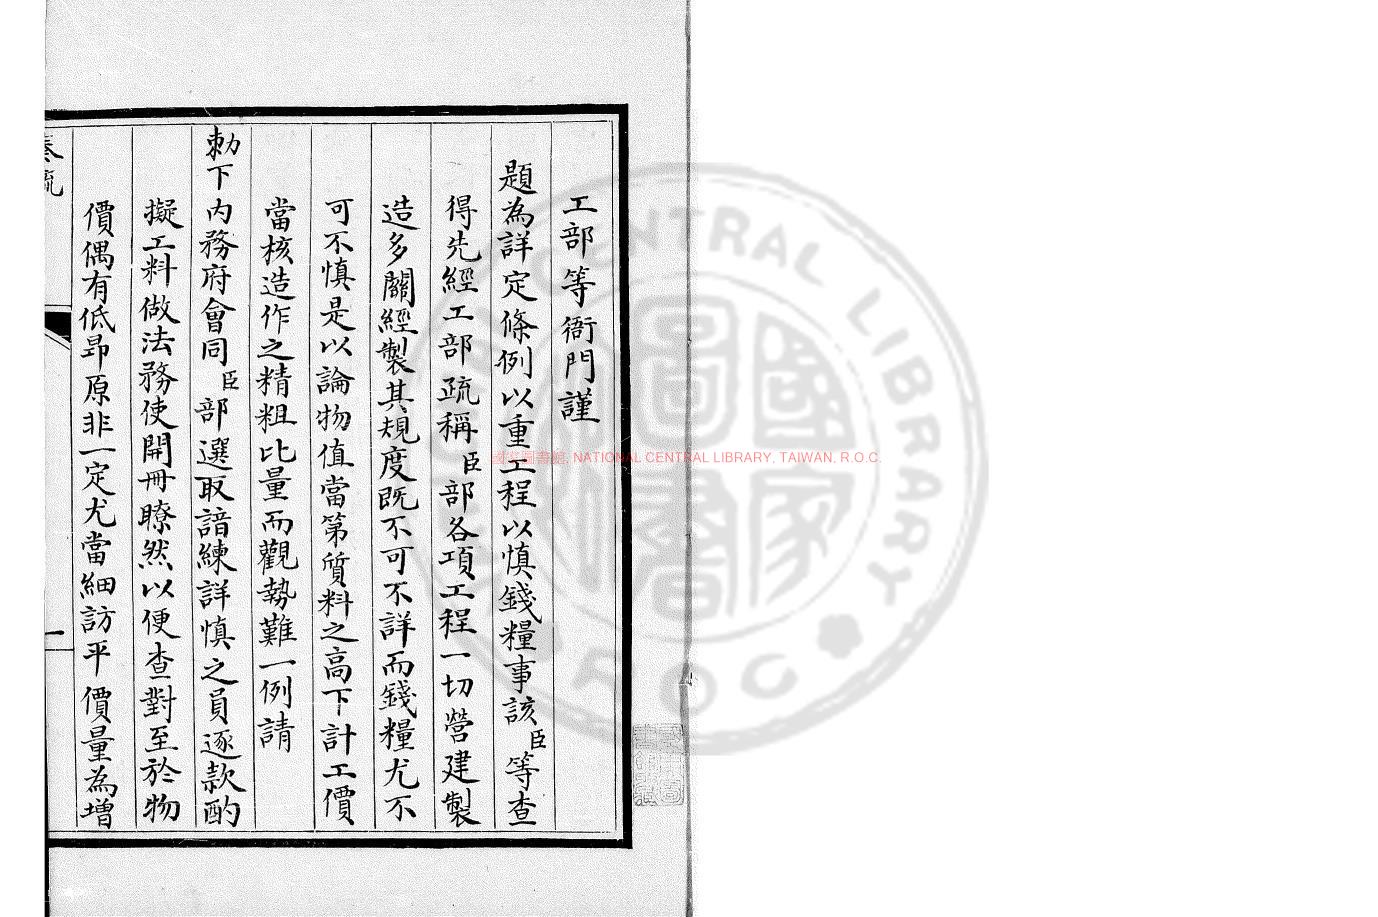 工部等衙門謹
題為詳定條例以重工程以慎錢糧事該臣等查
得先經工部疏稱臣部各項工程一切營建製
造多關經製其規度既不可不詳而錢糧尤不
可不慎是以論物值當第質料之高下計工價
當核造作之精粗比量而觀勢難一例請
勅下內務府會同臣部選取諳練詳慎之員逐款酌
擬工料做法務使開冊瞭然以便查對至於物
價偶有低昂原非一定尤當細訪平價量為增
奏疏
一
國家圖書館, NATIONAL CENTRAL LIBRARY, TAIWAN, R.O.C.
NATIONAL CENTRAL LIBRARY
R.O.C